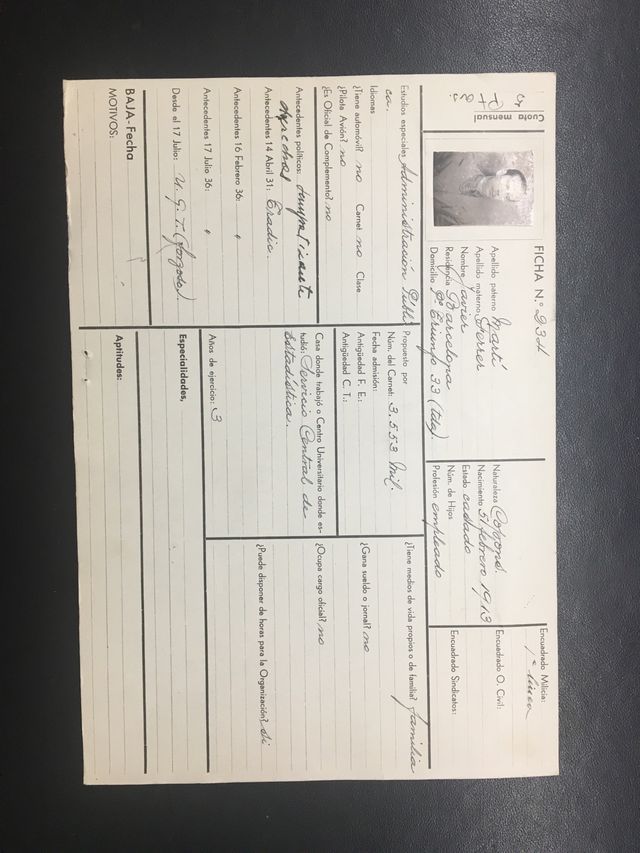 Cuota mensual
FICHA N.º 2311
Apellido paterno Martí
Apellido materno Ferrer
Nombre Javier
Residencia Barcelona
Domicilio Pº Triunfo 33 (tda).
Naturaleza Copons.
Nacimiento 5 febrero 1913
Estado casado
Núm. de Hijos
Profesión empleado
Encuadrado Milicia:
1ª línea
Encuadrado O. Civil:
Encuadrado Sindicatos:
Estudios especiales Administración Públi
ca.
Idiomas
¿Tiene automóvil? no Carnet no Clase
¿Pilota Avión? no
¿Es Oficial de Complemento? no
Propuesto por
Núm. del Carnet: 3.553 Mil.
Fecha admisión:
Antigüedad F. E.:
Antigüedad C. T.:
¿Tiene medios de vida propios o de familia? familia
¿Gana sueldo o jornal? no
¿Ocupa cargo oficial? no
¿Puede disponer de horas para la Organización? si
Antecedentes políticos: simpatizante
derechas
Antecedentes 14 Abril 31: Eradic.
Antecedentes 16 Febrero 36: "
Antecedentes 17 Julio 36: "
Desde el 17 Julio: U. G. T. (forzoso).
Casa donde trabajó o Centro Universitario donde es-
tudió: Servicio Central de
Estadística.
Años de ejercicio: 3
Especialidades,
BAJA-Fecha
MOTIVOS:
Aptitudes: